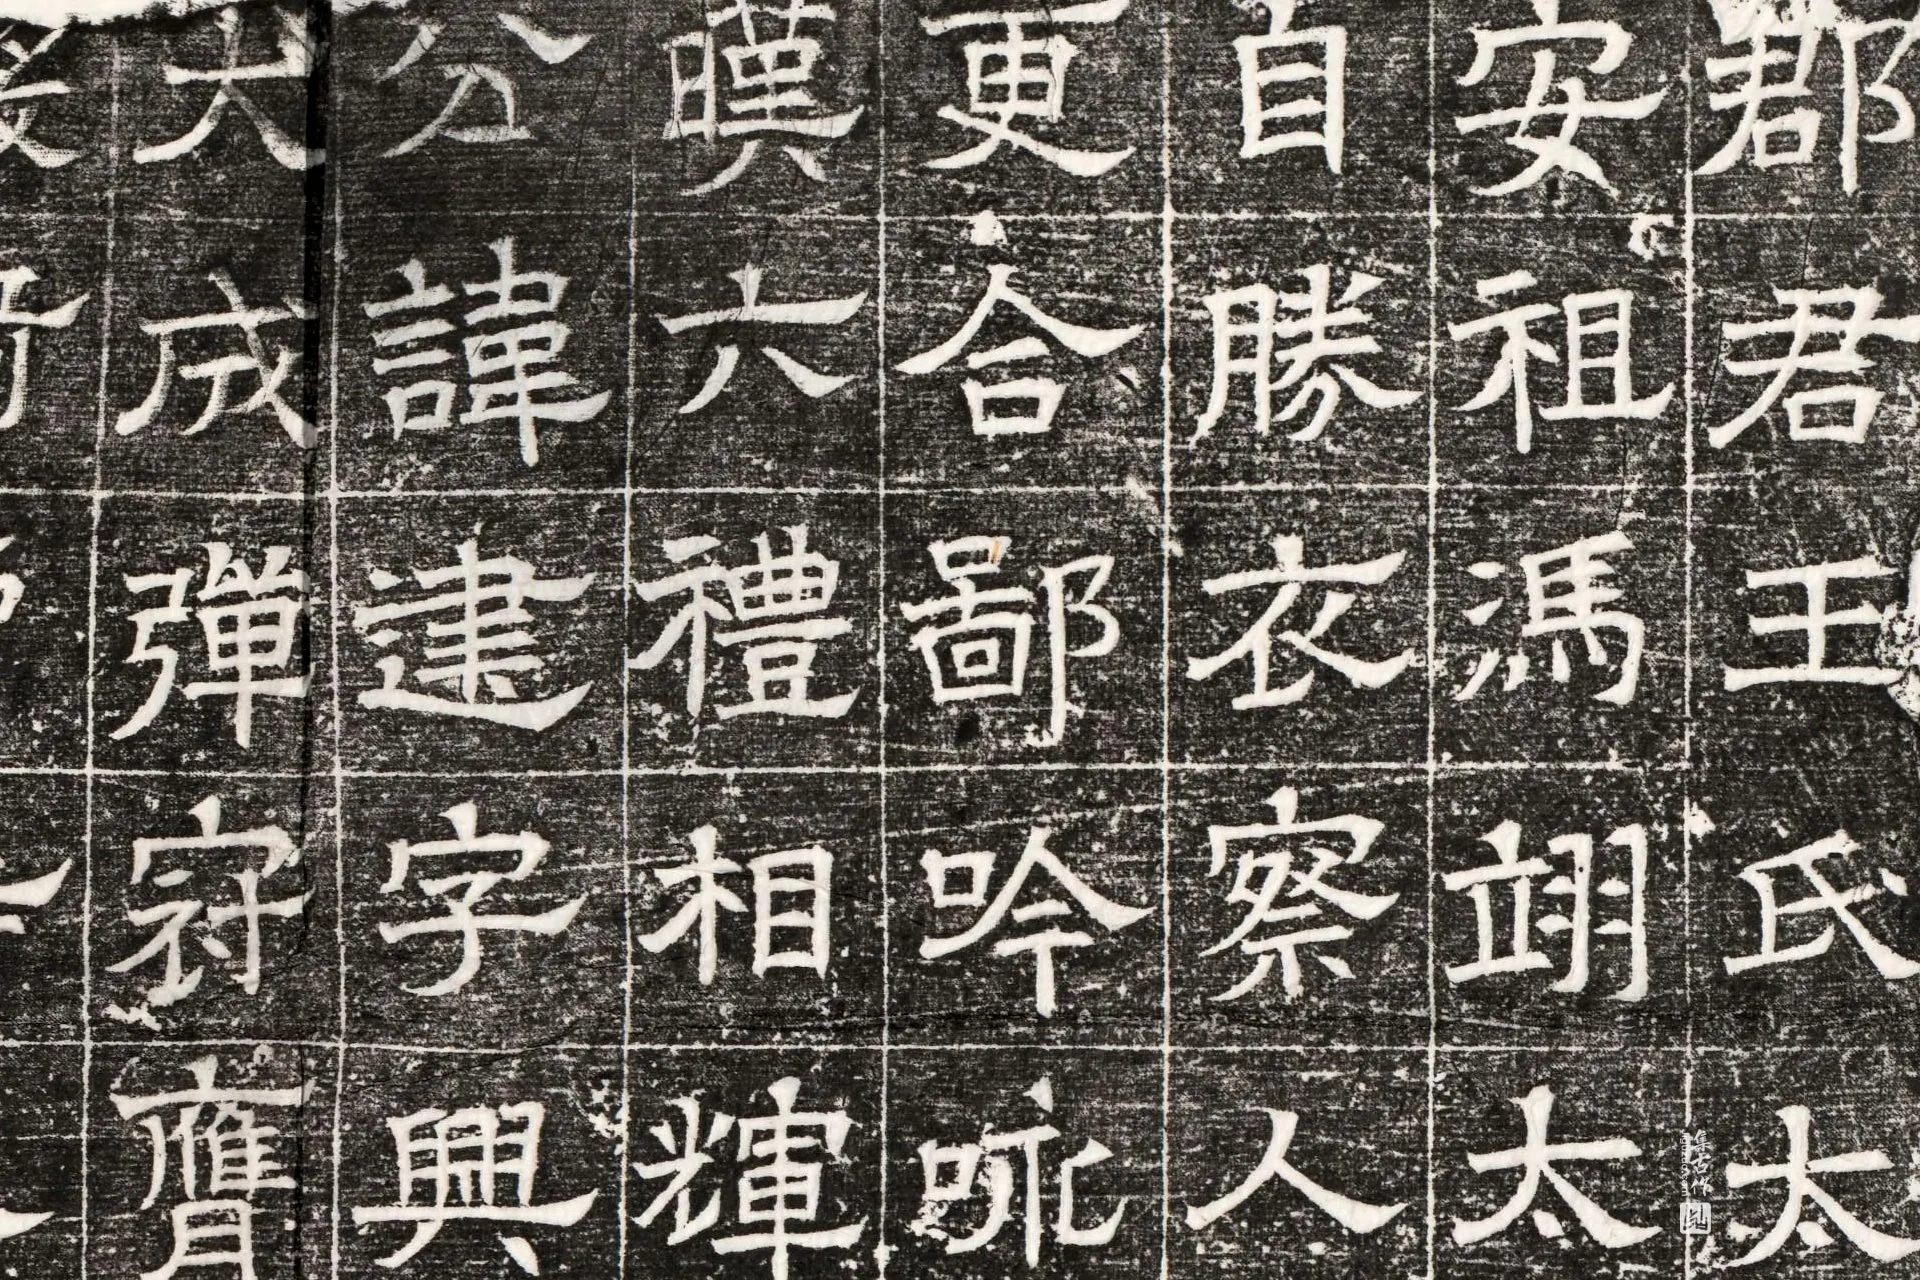 郡君王氏太
安祖馮翊太
自勝衣察人
更合鄙吟咏
暵六禮相輝
公諱建字興
大成彈冠膺